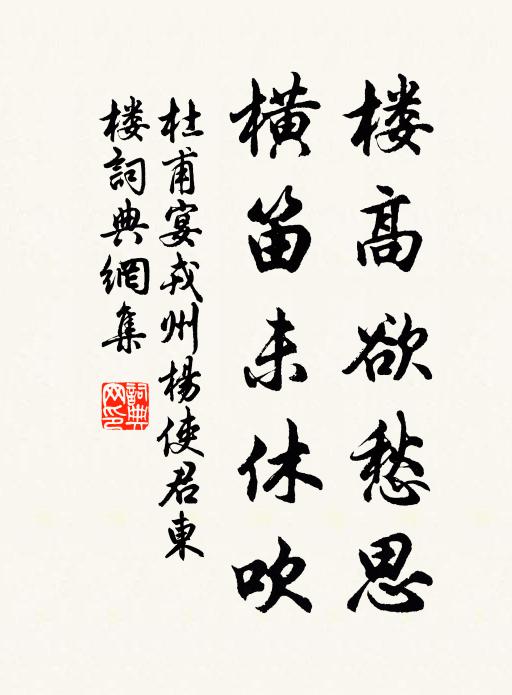 楼高欲愁思
横笛未休吹
杜甫宴戎州楊使君東
楼詞典網集
詞典
网印